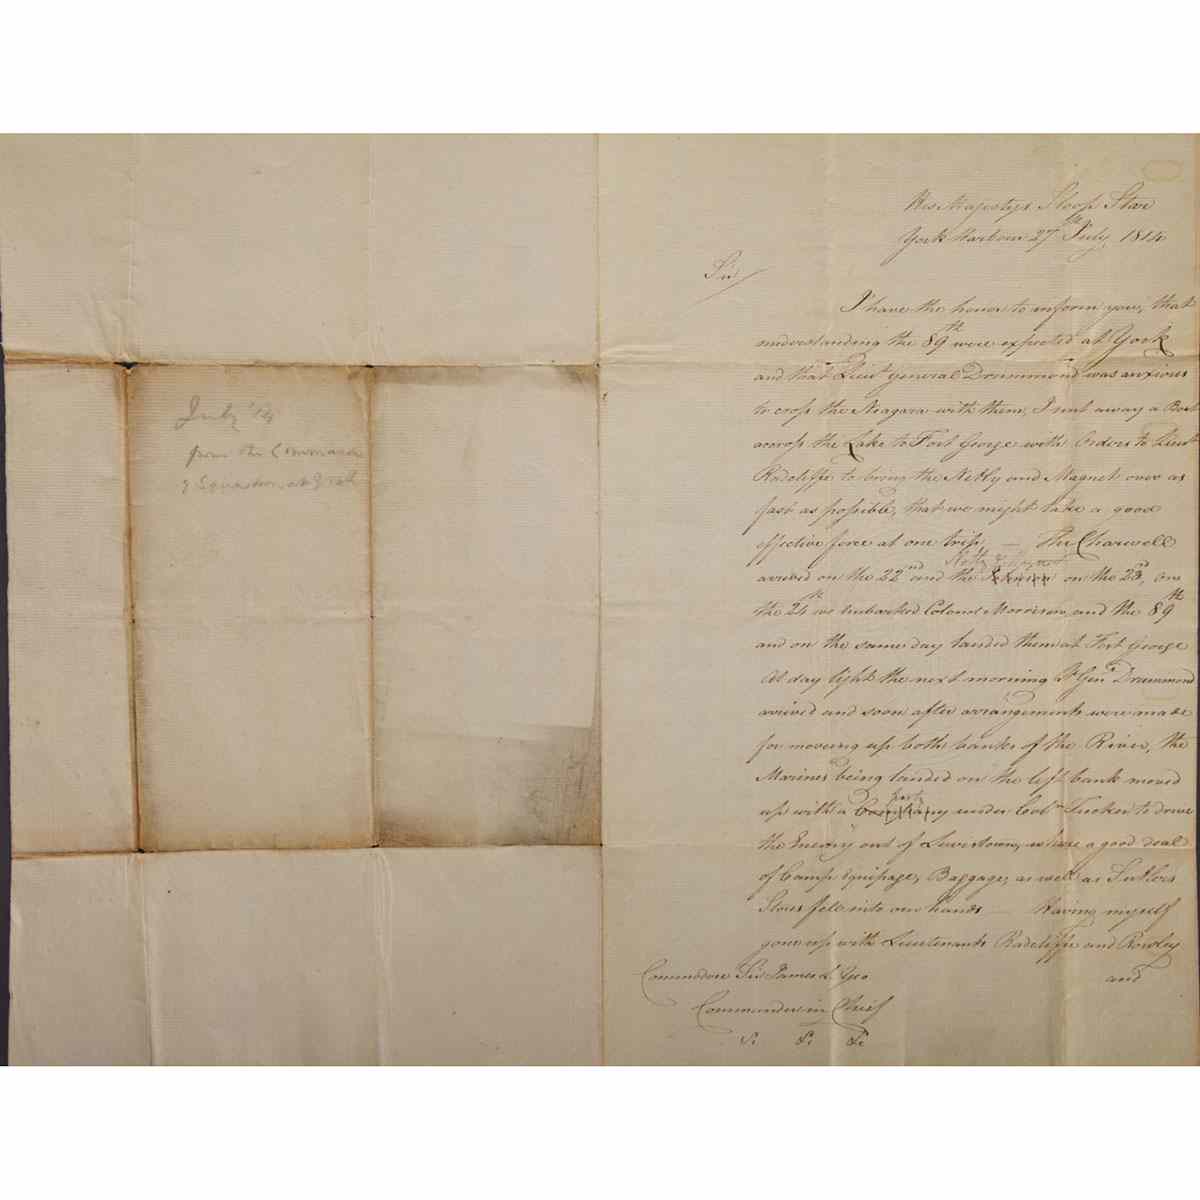 July '14
from the Command
of Squadron at York
His Majestys Sloop Star
York Harbour 27th July, 1814
Sir/
I have the honor to inform you, that
understanding the 89th were expected at York
and that Lieut general Drummond was anxious
to cross the Niagara with them, I sent away a Boat
accross the Lake to Fort George with Orders to Lieut
Radcliffe to bring the Netly and Magnet over as
fast as possible, that we might take a good
effective force at one trip, — the Charwell
Netly & Magnet
arrived on the 22nd and the on the 23d, On
the 24th we embarked Colonel Morrison, and the 89th
and on the same day landed them at Fort George
At day light the next morning Lt Genl Drummond
arrived and soon after arrangements were made
for moveing up both banks of the River, the
Marines being landed on the left bank moved
party
up with a Company under Coln Tucker to drive
the Enemy out of Lewistown, where a good deal
of Camp Equipage, Baggage, as well as Sutlers
Stores fell into our hands — Having myself
gone up with Lieutenants Radcliffe and Rowley
Commodore Sir James L. Yeo and
Commander in Chief
&c &c &c